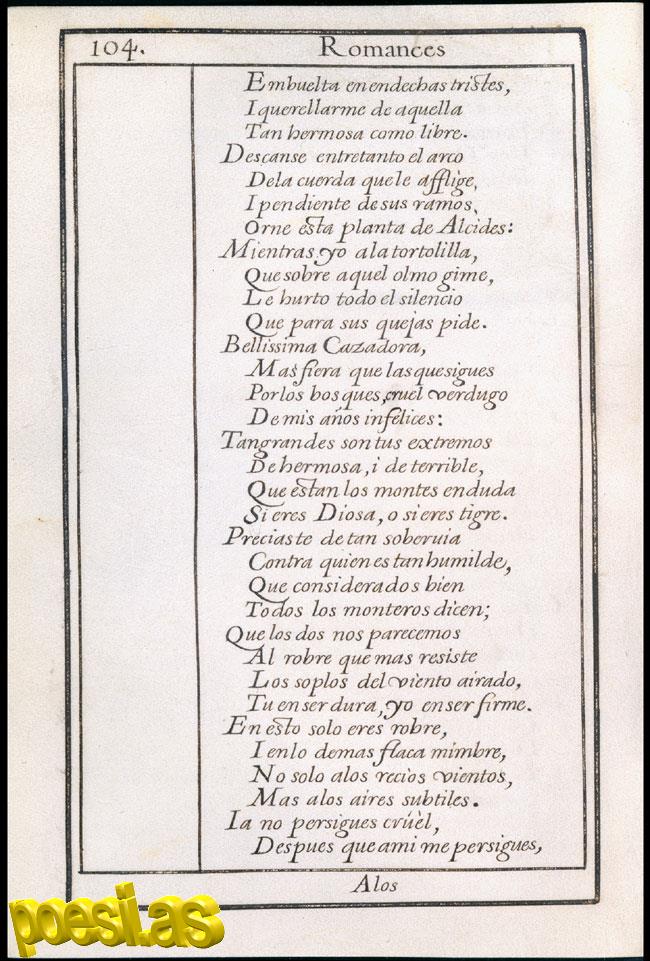 104.
Romances
Embuelta en endechas tristes,
I querellarme de aquella
Tan hermosa como libre.
Descanse entretanto el arco
Dela cuerda quele afflige,
I pendiente de sus ramos,
Orne esta planta de Alcides:
Mientras yo ala tortolilla,
Que sobre aquel olmo gime,
Le hurto todo el silencio
Que para sus quejas pide.
Bellissima Cazadora,
Mas fiera que las quesigues
Porlos bosques, cruel verdugo
De mis años infelices:
Tan grandes son tus extremos
De hermosa, i de terrible,
Que estan los montes enduda
Si eres Diosa, o si eres tigre.
Preciaste de tan soberuia
Contra quien es tan humilde,
Que considerados bien
Todos los monteros dicen;
Que los dos nos parecemos
Al robre que mas resiste
Los soplos del viento airado,
Tu en ser dura, yo en ser firme.
En esto solo eres robre,
I enlo demas flaca mimbre,
No solo alos recios vientos,
Mas alos aires subtiles.
Ia no persigues crüèl,
Despues que ami me persigues,
Alos
poesi.as